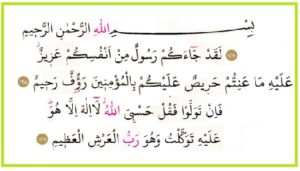 بِسْــــــمِ اللهِ الرَّحْمٰنِ الرَّح۪يمِ
﴿١٢٧﴾ لَقَدْ جَٓاءَكُمْ رَسُولٌ مِنْ اَنْفُسِكُمْ عَز۪يزٌ
عَلَيْهِ مَا عَنِتُّمْ حَر۪يصٌ عَلَيْكُمْ بِالْمُؤْمِن۪ينَ رَؤُ۫فٌ رَح۪يمٌ ﴿١٢٨﴾
فَاِنْ تَوَلَّوْا فَقُلْ حَسْبِيَ اللهُ لَٓا اِلٰهَ اِلَّا هُوَۜ
عَلَيْهِ تَوَكَّلْتُ وَهُوَ رَبُّ الْعَرْشِ الْعَظ۪يمِ ﴿١٢٩﴾